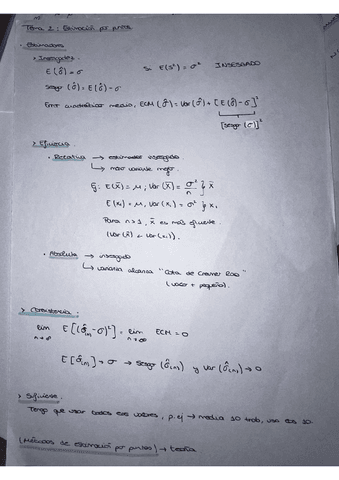 Tema 2: Estimación por puntos
· Estimadores
> Insesgadez
E(σ̂) = σ Si E(s²) = σ² INSESGADO
Sesgo (σ̂) = E(σ̂) - σ
Error cuadrático medio, ECM (σ̂) = Var (σ̂) + [E(σ̂) - σ]²
[sesgo (σ)]²
> Eficiencia
· Relativa → estimador insesgado
↳ menor varianza mejor
Ej: E(x̄) = μ ; Var (x̄) = σ²/n } x̄
E(x₁) = μ, Var (x₁) = σ² } x₁
Para n>1, x̄ es más eficiente.
(Var (x̄) < Var (x₁)).
· Absoluta → insesgado
↳ varianza alcanza "Cota de Cramer Rao"
(valor + pequeño).
> Consistencia:
lim n→∞ E[(σ̂(n) - σ)²] = lim n→∞ ECM = 0
E[σ̂(n)] → σ → Sesgo (σ̂(n)) y Var (σ̂(n)) → 0
> Suficiencia.
Tengo que usar todos esos valores, p.ej → media 10 trab, usa los 10.
(Métodos de estimación por puntos) → teoría